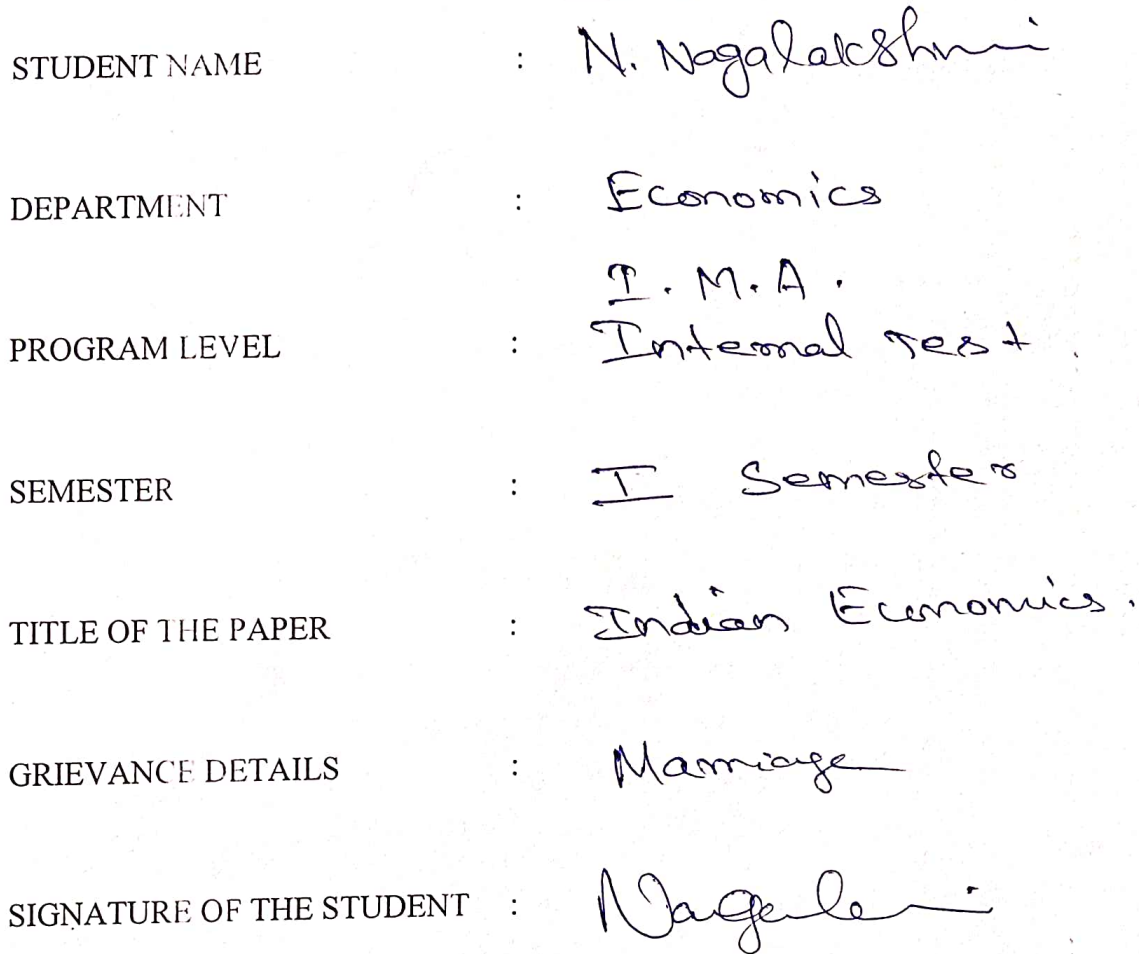 STUDENT NAME : N. Nagalakshmi
DEPARTMENT : Economics
I. M. A.
PROGRAM LEVEL : Internal Test.
SEMESTER : I Semester
TITLE OF THE PAPER : Indian Economics.
GRIEVANCE DETAILS : Marriage
SIGNATURE OF THE STUDENT :